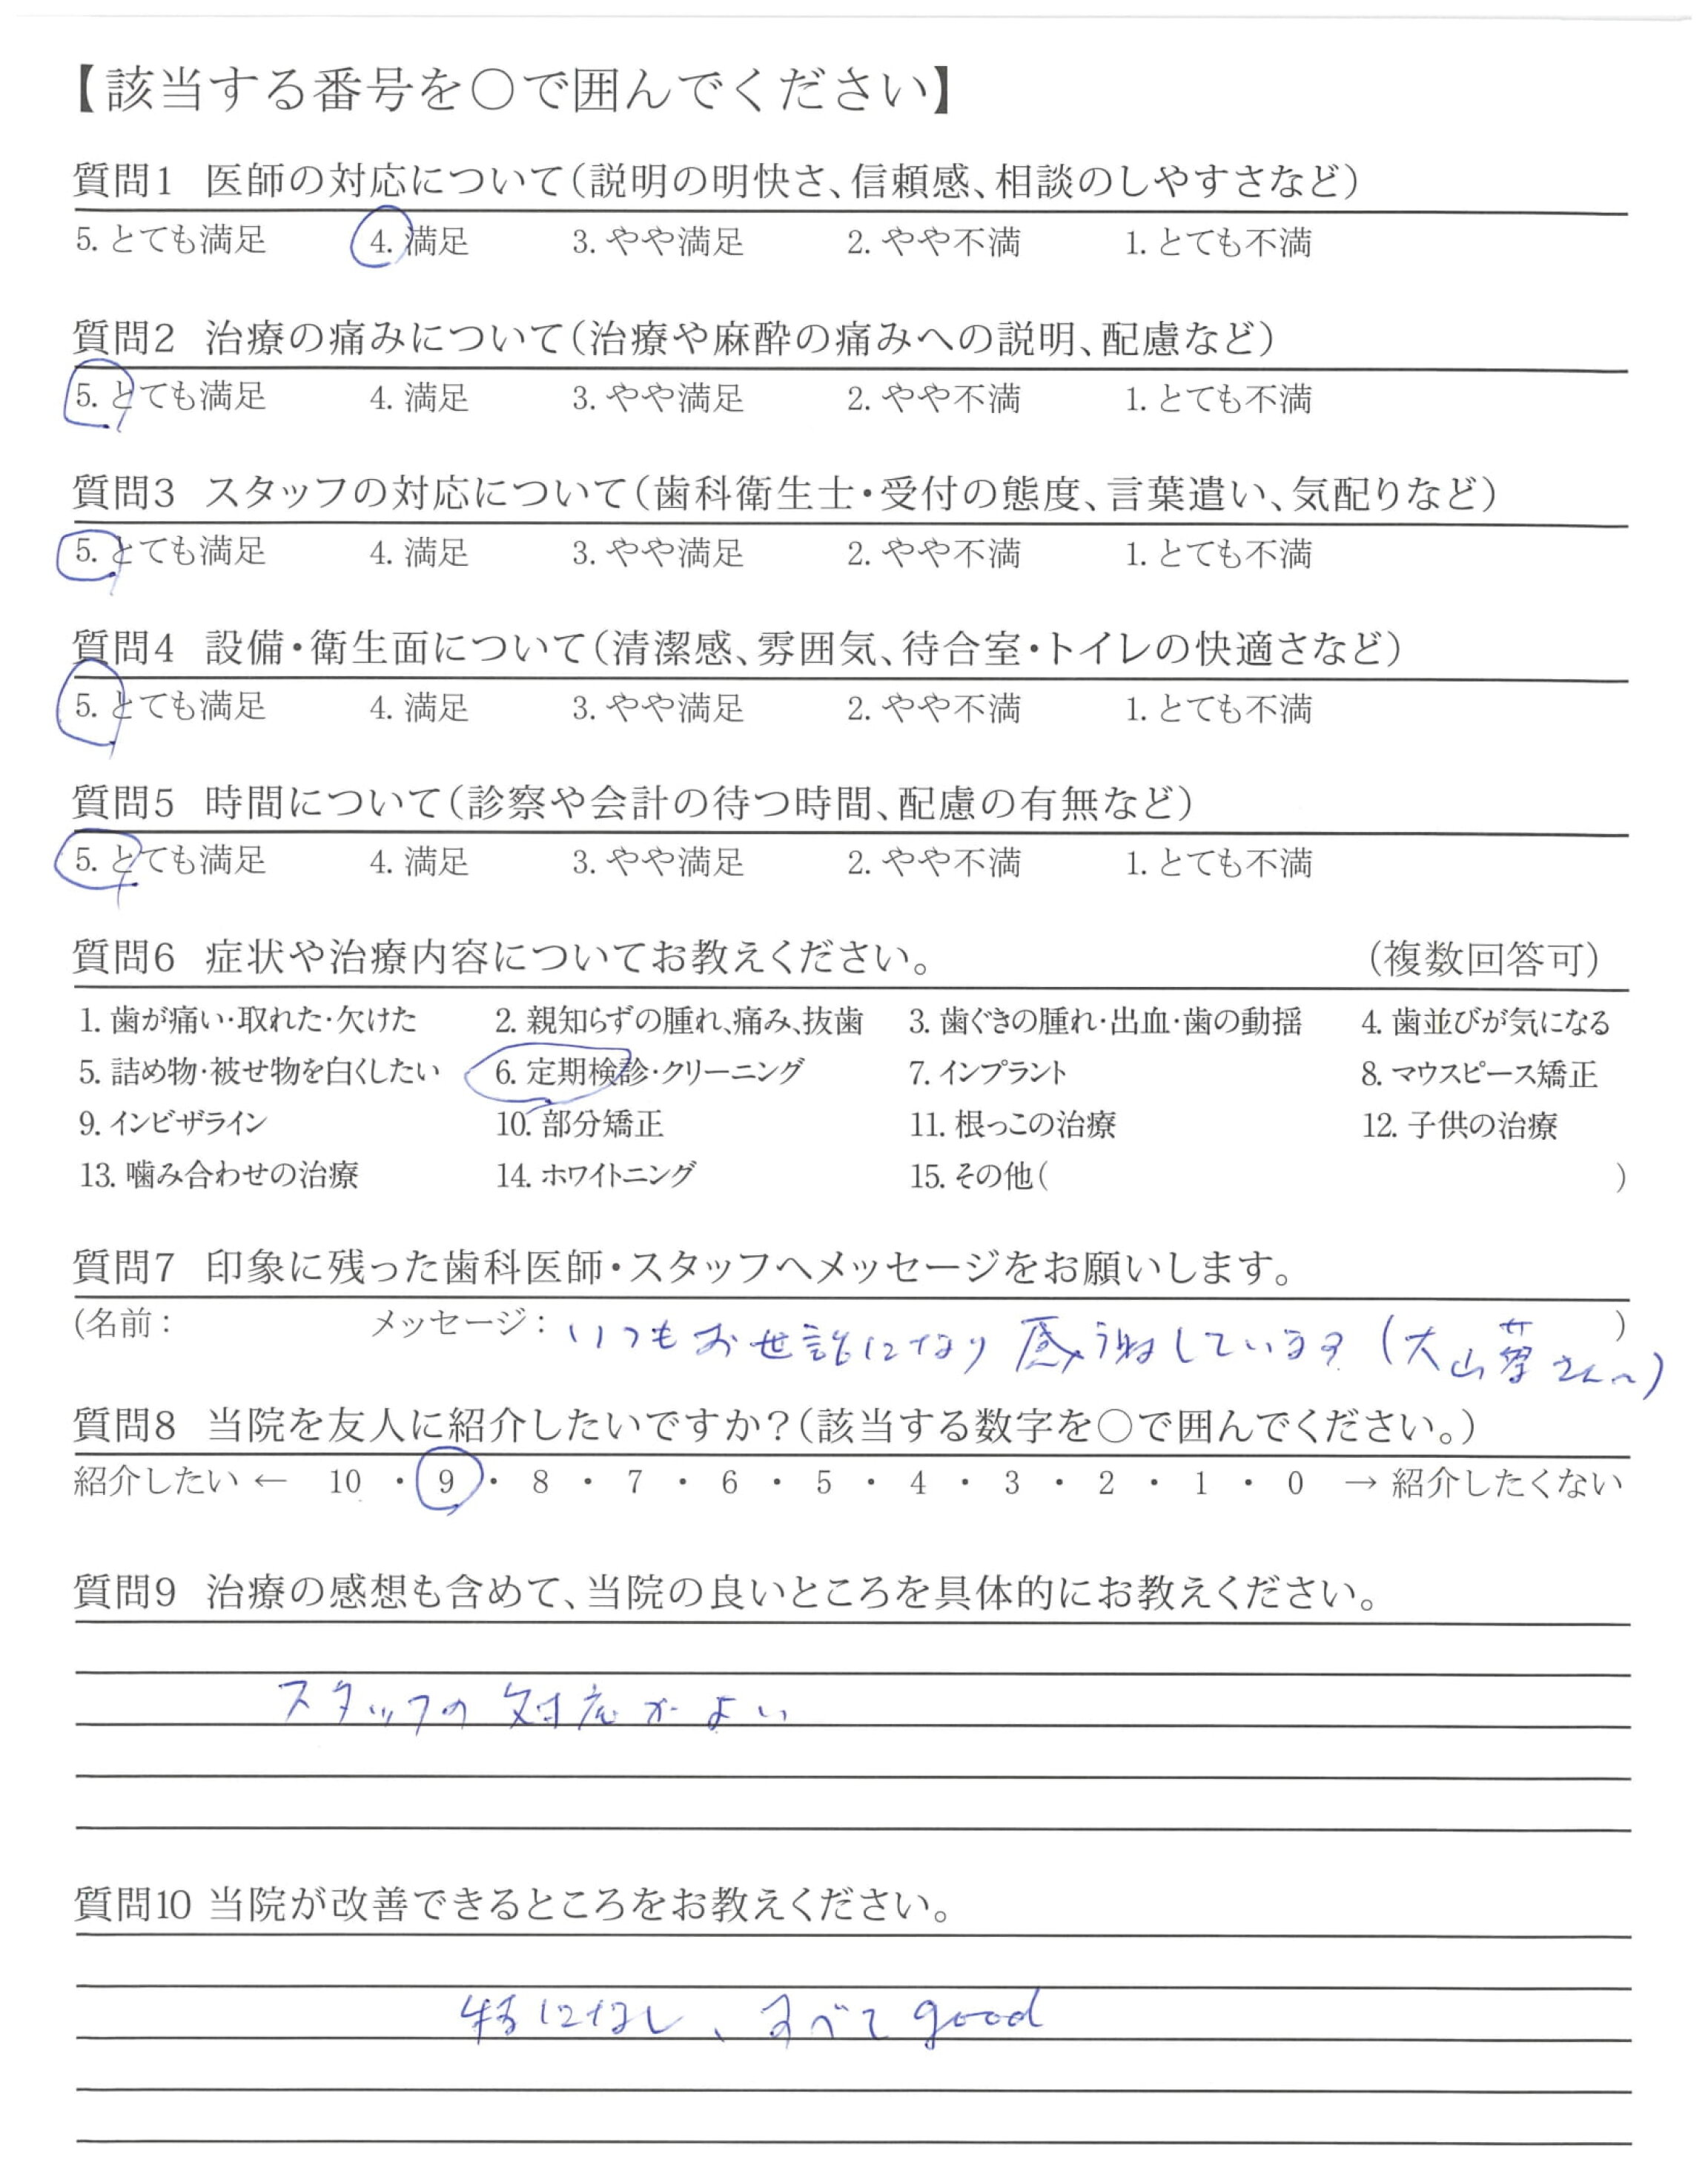 【該当する番号を○で囲んでください】
質問1 医師の対応について(説明の明快さ、信頼感、相談のしやすさなど)
5. とても満足 4. 満足 3. やや満足 2. やや不満 1. とても不満
質問2 治療の痛みについて(治療や麻酔の痛みへの説明、配慮など)
5. とても満足 4. 満足 3. やや満足 2. やや不満 1. とても不満
質問3 スタッフの対応について(歯科衛生士・受付の態度、言葉遣い、気配りなど)
5. とても満足 4. 満足 3. やや満足 2. やや不満 1. とても不満
質問4 設備・衛生面について(清潔感、雰囲気、待合室・トイレの快適さなど)
5. とても満足 4. 満足 3. やや満足 2. やや不満 1. とても不満
質問5 時間について(診察や会計の待つ時間、配慮の有無など)
5. とても満足 4. 満足 3. やや満足 2. やや不満 1. とても不満
質問6 症状や治療内容についてお教えください。 (複数回答可)
1. 歯が痛い・取れた・欠けた 2. 親知らずの腫れ、痛み、抜歯 3. 歯ぐきの腫れ・出血・歯の動揺 4. 歯並びが気になる
5. 詰め物・被せ物を白くしたい 6. 定期検診・クリーニング 7. インプラント 8. マウスピース矯正
9. インビザライン 10. 部分矯正 11. 根っこの治療 12. 子供の治療
13. 噛み合わせの治療 14. ホワイトニング 15. その他( )
質問7 印象に残った歯科医師・スタッフへメッセージをお願いします。
(名前: メッセージ: いつもお世話になり感謝しています (大山 さんへ) )
質問8 当院を友人に紹介したいですか?(該当する数字を○で囲んでください。)
紹介したい ← 10 ・ 9 ・ 8 ・ 7 ・ 6 ・ 5 ・ 4 ・ 3 ・ 2 ・ 1 ・ 0 → 紹介したくない
質問9 治療の感想も含めて、当院の良いところを具体的にお教えください。
スタッフの対応がよい
質問10 当院が改善できるところをお教えください。
特になし、すべてgood